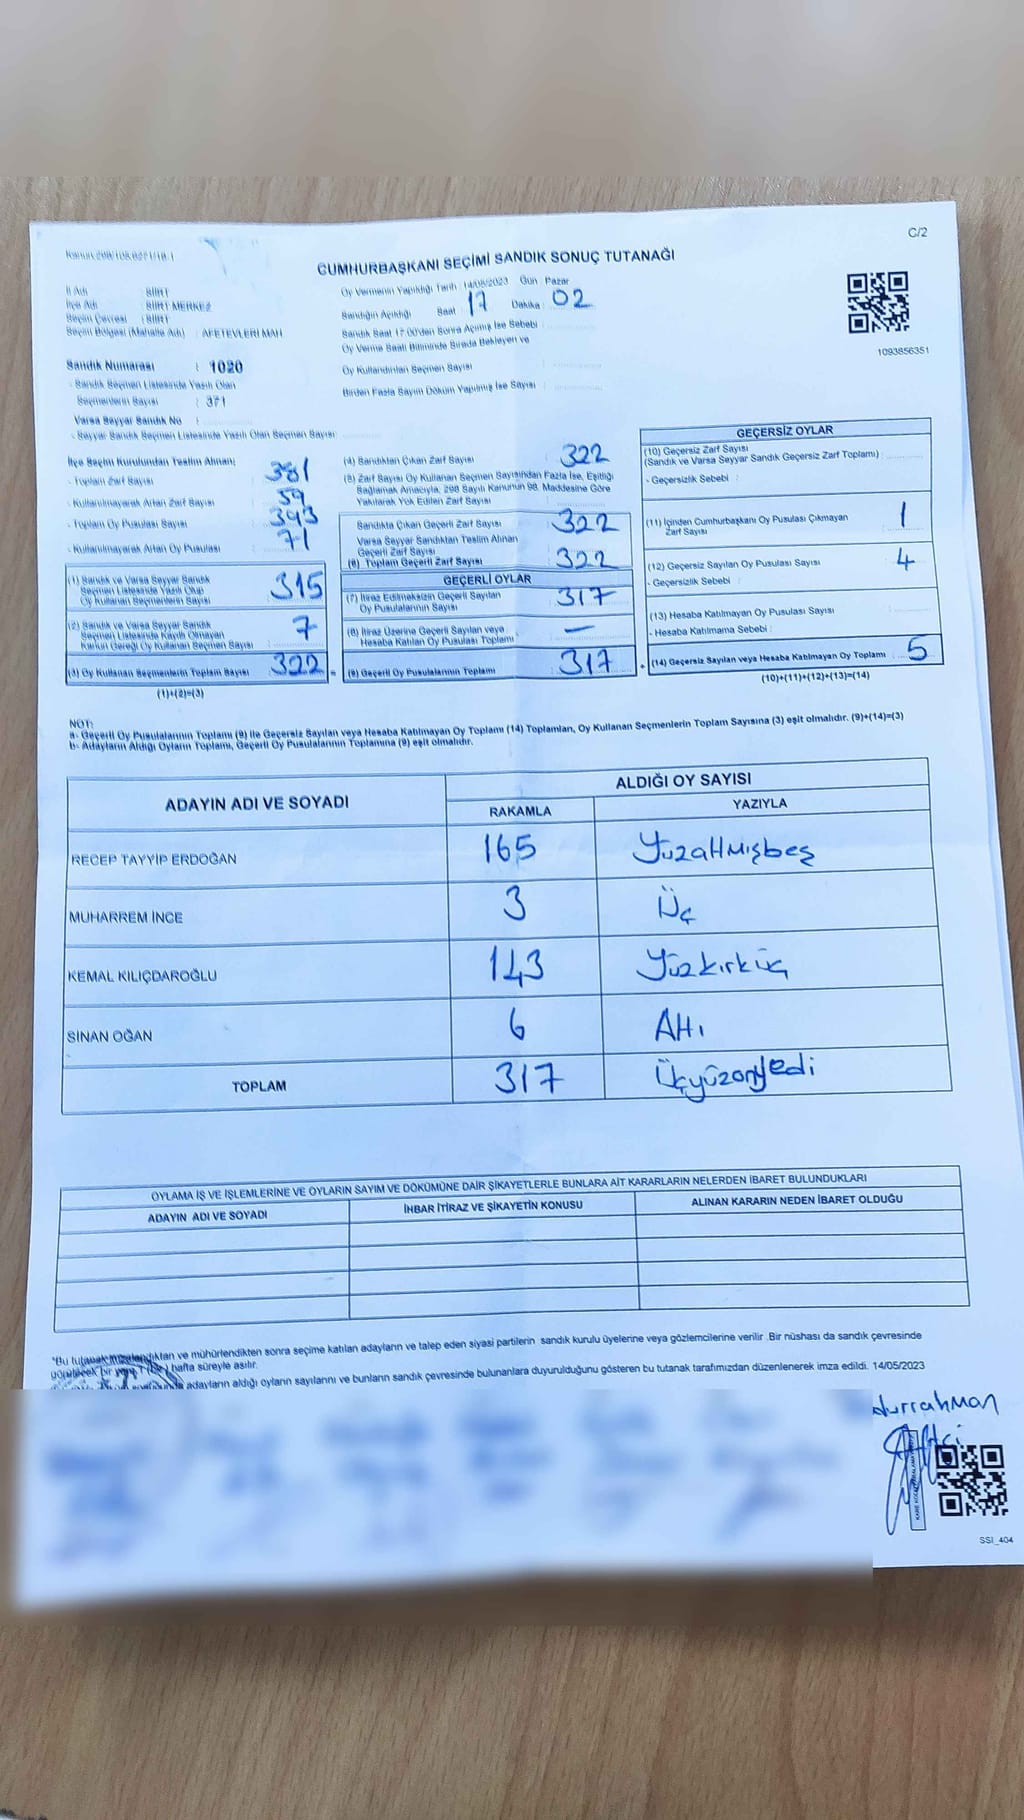 C/2
CUMHURBAŞKANI SEÇİMİ SANDIK SONUÇ TUTANAĞI
1093856351
İl Adı : SİİRT
İlçe Adı : SİİRT MERKEZ
Seçim Çevresi : SİİRT
Seçim Bölgesi (Mahalle Adı) : AFETEVLERİ MAH
Sandık Numarası : 1020
- Sandık Seçmen Listesinde Yazılı Olan
Seçmenlerin Sayısı : 371
Varsa Seyyar Sandık No :
- Seyyar Sandık Seçmen Listesinde Yazılı Olan Seçmen Sayısı:
Oy Vermenin Yapıldığı Tarih : 14/05/2023 Gün : Pazar
Sandığın Açıldığı Saat : 17 Dakika : 02
Sandık Saat 17:00'den Sonra Açılmış İse Sebebi :
Oy Verme Saati Bitiminde Sırada Bekleyen ve
Oy Kullandırılan Seçmen Sayısı :
Birden Fazla Sayım Döküm Yapılmış İse Sayısı :
İlçe Seçim Kurulundan Teslim Alınan:
- Toplam Zarf Sayısı : 381
- Kullanılmayarak Artan Zarf Sayısı : 59
- Toplam Oy Pusulası Sayısı : 393
- Kullanılmayarak Artan Oy Pusulası : 71
(1) Sandık ve Varsa Seyyar Sandık
Seçmen Listesinde Yazılı Olup
Oy Kullanan Seçmenlerin Sayısı : 315
(2) Sandık ve Varsa Seyyar Sandık
Seçmen Listesinde Kayıtlı Olmayan
Kanun Gereği Oy Kullanan Seçmen Sayısı : 7
(3) Oy Kullanan Seçmenlerin Toplam Sayısı : 322
(1)+(2)=(3)
(4) Sandıktan Çıkan Zarf Sayısı : 322
(5) Zarf Sayısı Oy Kullanan Seçmen Sayısından Fazla İse, Eşitliği
Sağlamak Amacıyla, 298 Sayılı Kanunun 98. Maddesine Göre
Yakılarak Yok Edilen Zarf Sayısı :
Sandıkta Çıkan Geçerli Zarf Sayısı : 322
Varsa Seyyar Sandıktan Teslim Alınan
Geçerli Zarf Sayısı :
(6) Toplam Geçerli Zarf Sayısı : 322
GEÇERLİ OYLAR
(7) İtiraz Edilmeksizin Geçerli Sayılan
Oy Pusulalarının Sayısı : 317
(8) İtiraz Üzerine Geçerli Sayılan veya
Hesaba Katılan Oy Pusulası Toplamı : —
(9) Geçerli Oy Pusulalarının Toplamı : 317
GEÇERSİZ OYLAR
(10) Geçersiz Zarf Sayısı
(Sandık ve Varsa Seyyar Sandık Geçersiz Zarf Toplamı) :
- Geçersizlik Sebebi :
(11) İçinden Cumhurbaşkanı Oy Pusulası Çıkmayan
Zarf Sayısı : 1
(12) Geçersiz Sayılan Oy Pusulası Sayısı : 4
- Geçersizlik Sebebi :
(13) Hesaba Katılmayan Oy Pusulası Sayısı :
- Hesaba Katılmama Sebebi :
(14) Geçersiz Sayılan veya Hesaba Katılmayan Oy Toplamı : 5
(10)+(11)+(12)+(13)=(14)
NOT:
a- Geçerli Oy Pusulalarının Toplamı (9) ile Geçersiz Sayılan veya Hesaba Katılmayan Oy Toplamı (14) Toplamları, Oy Kullanan Seçmenlerin Toplam Sayısına (3) eşit olmalıdır. (9)+(14)=(3)
b- Adayların Aldığı Oyların Toplamı, Geçerli Oy Pusulalarının Toplamına (9) eşit olmalıdır.
ADAYIN ADI VE SOYADI ALDIĞI OY SAYISI
RAKAMLA YAZIYLA
RECEP TAYYİP ERDOĞAN 165 Yüzaltmışbeş
MUHARREM İNCE 3 Üç
KEMAL KILIÇDAROĞLU 143 Yüzkırküç
SİNAN OĞAN 6 Altı
TOPLAM 317 Üçyüzonyedi
OYLAMA İŞ VE İŞLEMLERİNE VE OYLARIN SAYIM VE DÖKÜMÜNE DAİR ŞİKAYETLERLE BUNLARA AİT KARARLARIN NELERDEN İBARET BULUNDUKLARI
ADAYIN ADI VE SOYADI İHBAR İTİRAZ VE ŞİKAYETİN KONUSU ALINAN KARARIN NEDEN İBARET OLDUĞU
*Bu tutanak imzalandıktan ve mühürlendikten sonra seçime katılan adayların ve talep eden siyasi partilerin sandık kurulu üyelerine veya gözlemcilerine verilir .Bir nüshası da sandık çevresinde
görülecek bir yere 1 (bir) hafta süreyle asılır.
adayların aldığı oyların sayılarını ve bunların sandık çevresinde bulunanlara duyurulduğunu gösteren bu tutanak tarafımızdan düzenlenerek imza edildi. 14/05/2023
durrahman
SSI_404